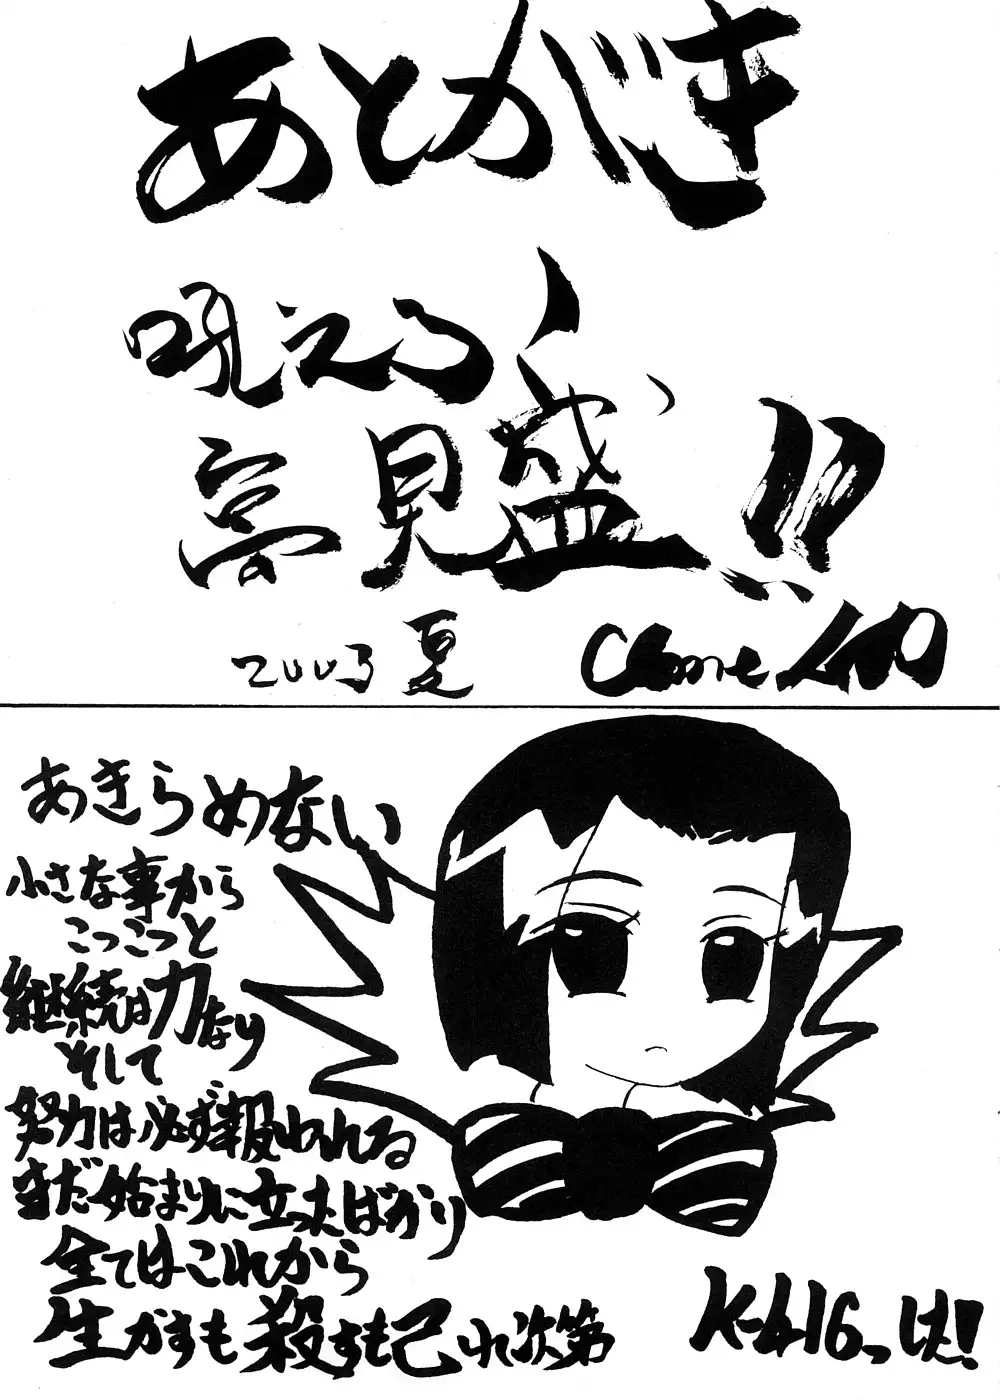 あとがき
吼えろ！
夢見盛!!
2003 夏
あきらめない
小さな事から
こつこつと
継続は力なり
そして
努力は必ず報われる
まだ始まりに立ったばかり
全てはこれから
生かすも殺すも己れ次第
K-416っす!